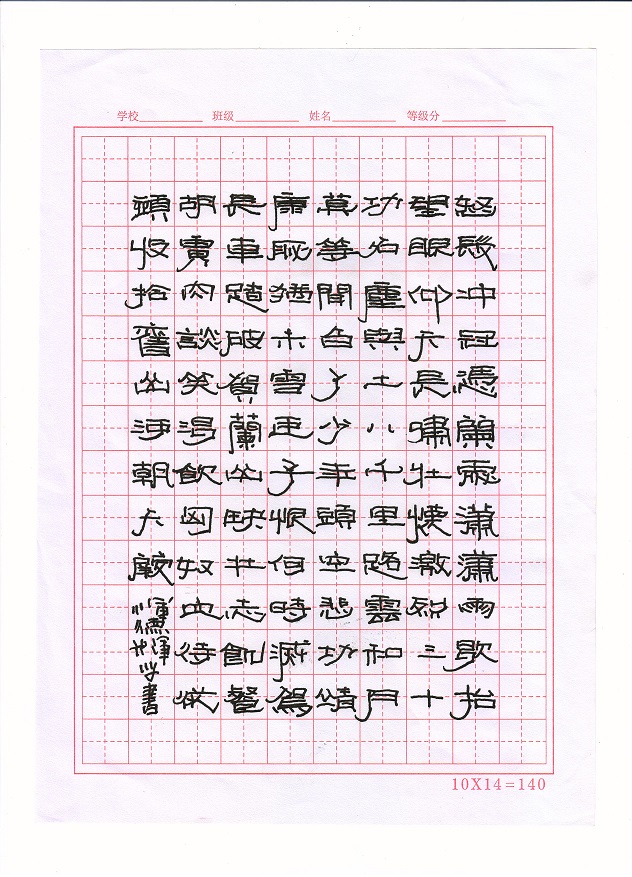 学校 班级 姓名 等级分
怒髮冲冠憑闌處瀟瀟雨歇抬
望眼仰天長嘯壯懷激烈三十
功名塵與土八千里路雲和月
莫等閒白了少年頭空悲切靖
康恥猶未雪臣子恨何時滅駕
長車踏破賀蘭山缺壯志飢餐
胡虜肉談笑渴飲匈奴血待從
頭收拾舊山河朝天闕
書
10X14=140